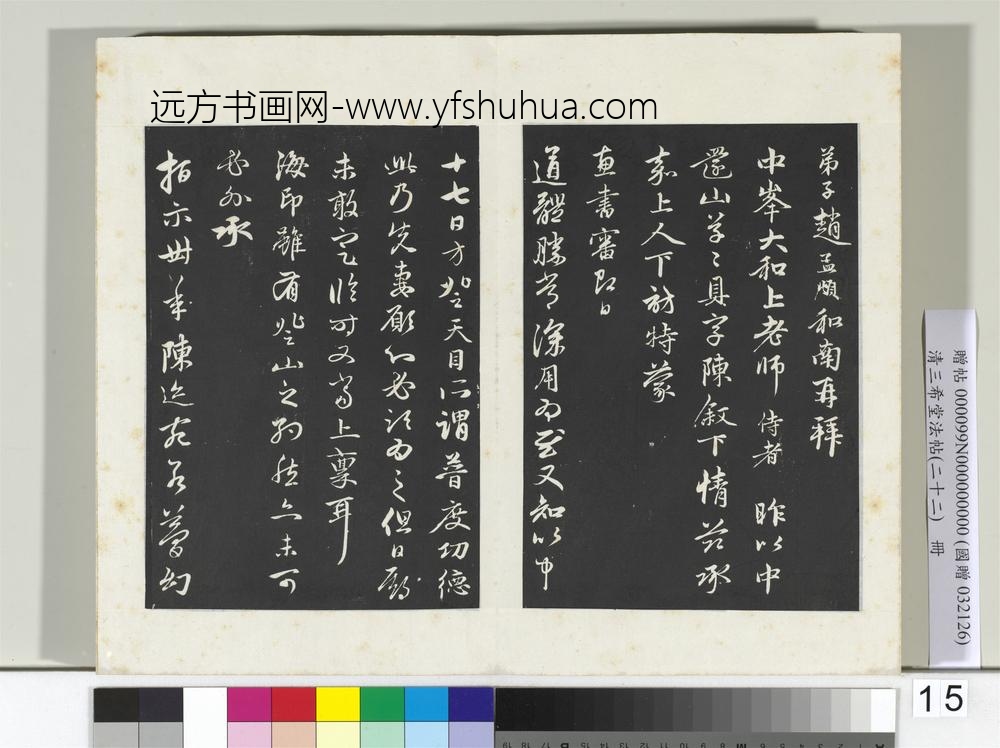 远方书画网-www.yfshuhua.com
弟子趙孟頫和南再拜
中峯大和上老师侍者 昨以中
還山草々具字陳叙下情兹承
嘉上人下訪特蒙
惠書審即日
道體勝常深用為慰又知以中
十七日方登天目所謂普度功德
此乃先妻願心必須為之但日辰
未敢定臨时又當上稟耳
海印雖有登山之約然亦未可
必外承
指示卅年陳迹宛若夢幻
贈帖 000099N000000000 (國贈 032126)
清三希堂法帖(二十二) 冊
15